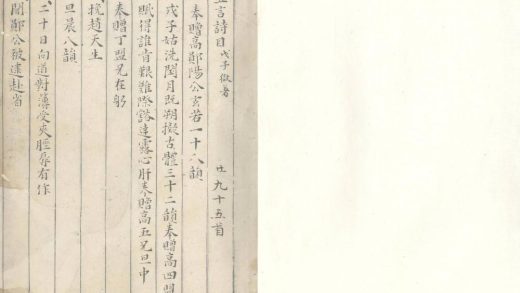 五言詩目 戊子獄著 九十五首
奉贈高鄖陽公玄若一十八韻
戊子姑洗閏月既朔擬古體三十二韻奉贈高四盟
賦得誰肯艱難際豁達露心肝奉贈高五兄旦中
奉贈丁盟兄在躬
挽趙天生
旦晨八韻
二十日向道對薄受夾脛辱有作
聞鄖公被逮赴省